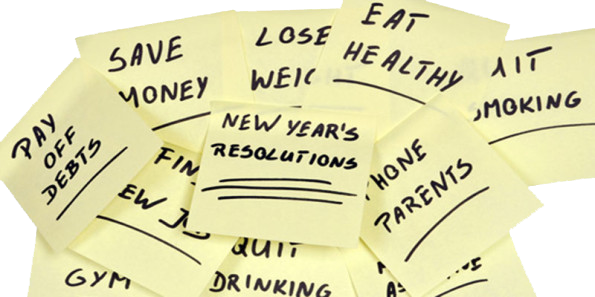 SAVE
MONEY
LOSE
EAT
HEALTHY
SMOKING
PAY
OFF
DEBTS
NEW YEAR'S
RESOLUTIONS
PHONE
PARENTS
QUIT
DRINKING
GYM